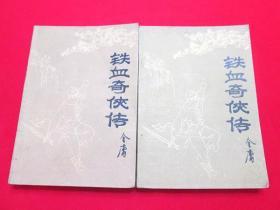 铁血奇侠传
金庸
铁血奇侠传
金庸